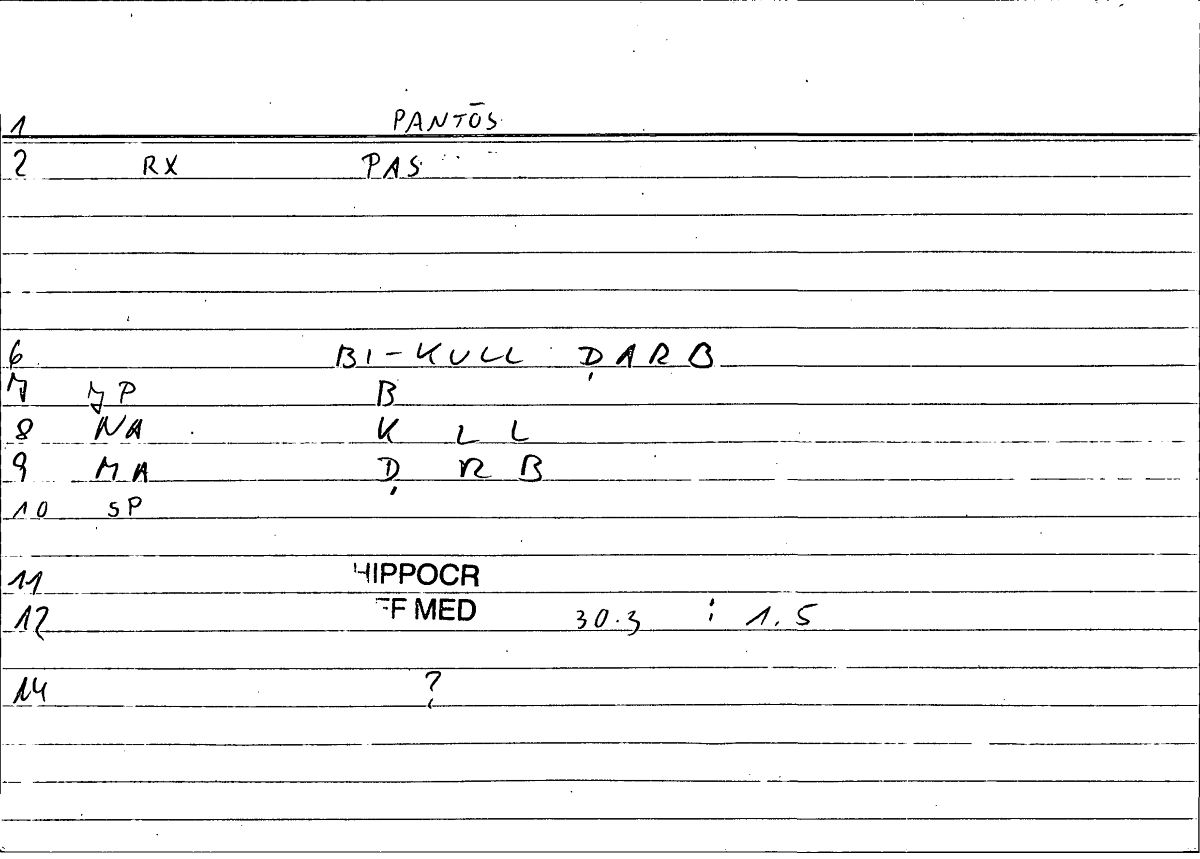 1 PANTŌS
2 RX PAS
6 BI-KULL ḌARB
7 JP B
8 NA K L L
9 MA Ḍ R B
10 SP
11 HIPPOCR
12 FF MED 30.3 : 1.5
14 ?